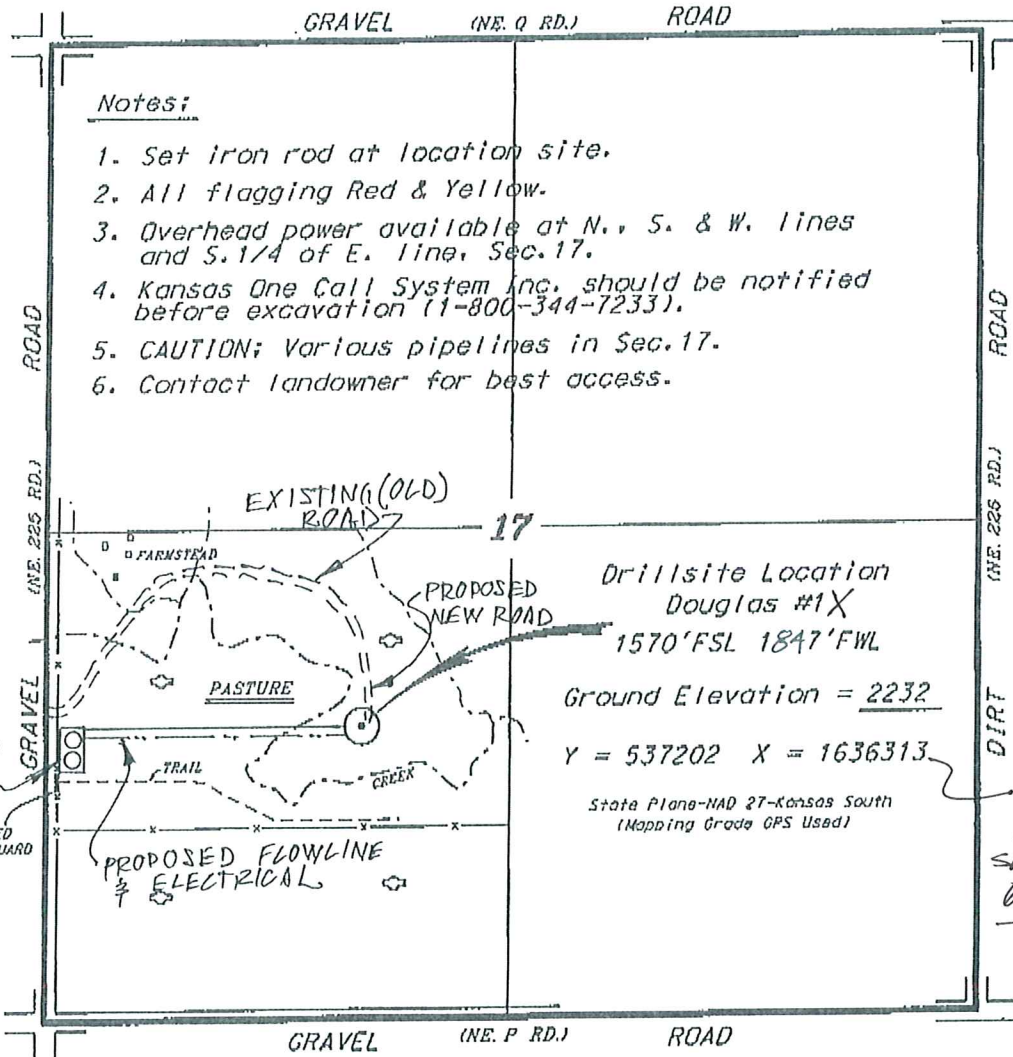 GRAVEL (NE. Q RD.) ROAD
Notes:
1. Set iron rod at location site.
2. All flagging Red & Yellow.
3. Overhead power available at N., S. & W. lines
and S.1/4 of E. line, Sec.17.
4. Kansas One Call System Inc. should be notified
before excavation (1-800-344-7233).
5. CAUTION: Various pipelines in Sec.17.
6. Contact landowner for best access.
ROAD
(NE. 225 RD.)
GRAVEL
ROAD
(NE. 226 RD.)
DIRT
EXISTING (OLD)
ROAD
17
FARMSTEAD
PROPOSED
NEW ROAD
Drillsite Location
Douglas #1X
1570'FSL 1847'FWL
PASTURE
Ground Elevation = 2232
Y = 537202 X = 1636313
TRAIL
CREEK
State Plane-NAD 27-Kansas South
(Mapping Grade GPS Used)
PROPOSED FLOWLINE
& ELECTRICAL
GRAVEL (NE. P RD.) ROAD